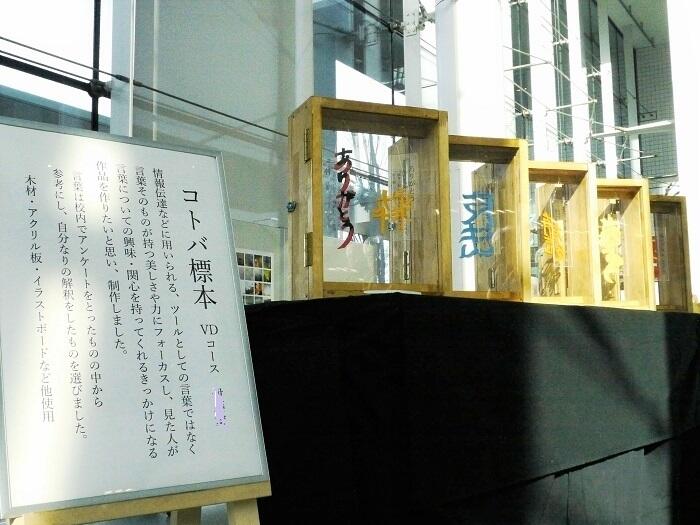 コトバ標本 VDコース
情報伝達などに用いられる、ツールとしての言葉ではなく
言葉そのものが持つ美しさや力にフォーカスし、見た人が
言葉についての興味・関心を持ってくれるきっかけになる
作品を作りたいと思い、制作しました。
言葉は校内でアンケートをとったものの中から
参考にし、自分なりの解釈をしたものを選びました。
木材・アクリル板・イラストボードなど他使用
ありがとう